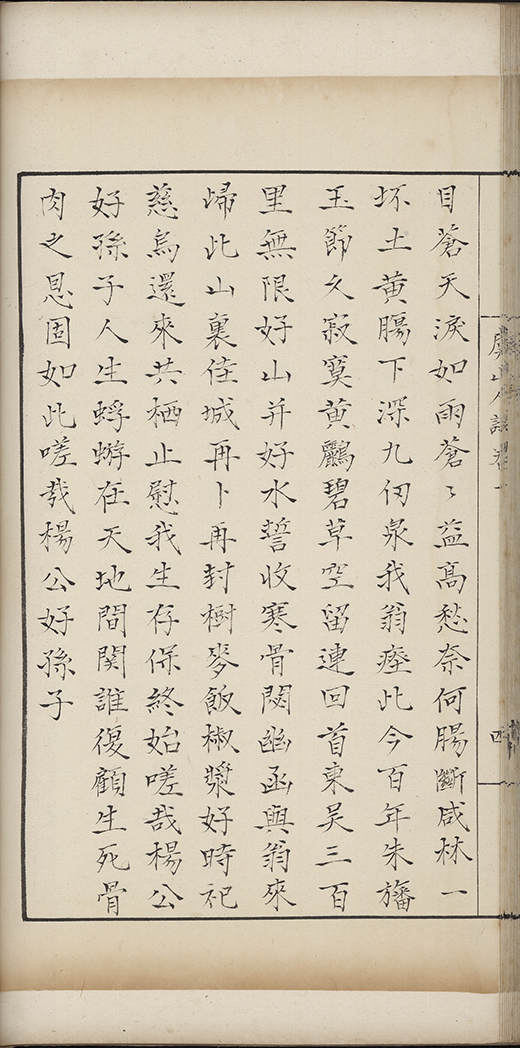 目蒼天淚如雨蒼〻益高愁奈何腸斷咸林一
坏土黃腸下深九仞泉我翁瘞此今百年朱旛
玉節久寂寞黃鸝碧草空留連回首東吳三百
里無限好山并好水誓收寒骨閟幽函與翁來
歸此山裏佳城再卜再封樹麥飯椒漿好時祀
慈烏還來共栖止慰我生存保終始嗟哉楊公
好孫子人生蜉蝣在天地間關誰復顧生死骨
肉之恩固如此嗟哉楊公好孫子
虞山人詩卷一
四